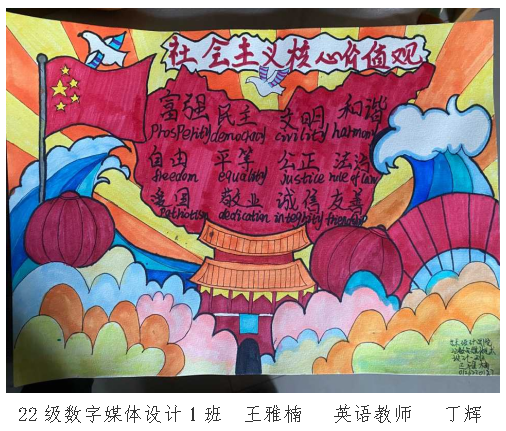 社会主义核心价值观
富强 民主 文明 和谐
Prosperity democracy civility harmony
自由 平等 公正 法治
freedom equality Justice rule of law
爱国 敬业 诚信 友善
patriotism dedication integrity friendship
艺术设计学院
设计一班
王雅楠
22级数字媒体设计1班 王雅楠 英语教师 丁辉